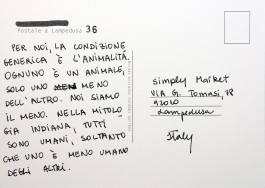 Postale a Lampedusa 36
PER NOI, LA CONDIZIONE
GENERICA È L'ANIMALITÀ.
OGNUNO È UN ANIMALE,
SOLO UNO MENO
DELL'ALTRO. NOI SIAMO
IL MENO. NELLA MITOLO
GIA INDIANA, TUTTI
SONO UMANI, SOLTANTO
CHE UNO È MENO UMANO
DEGLI ALTRI.
Simply Market
VIA G. Tomasi, 78
92010
Lampedusa
Italy